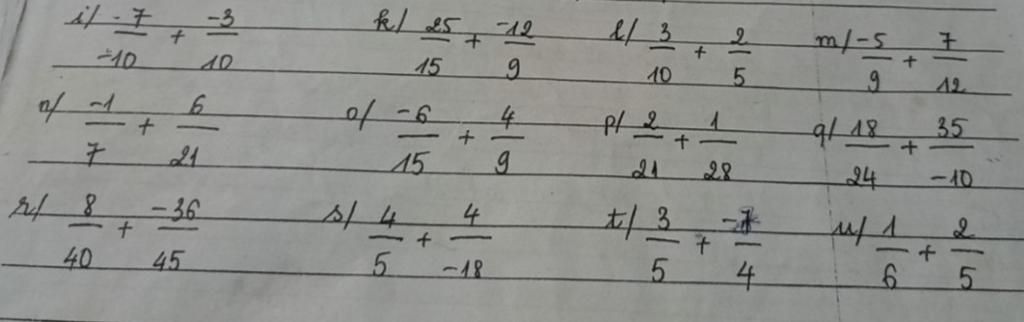 i/ -7/-10 + -3/10 k/ 25/15 + -12/9 l/ 3/10 + 2/5 m/ -5/9 + 7/12
n/ -1/7 + 6/21 o/ -6/15 + 4/9 p/ 2/21 + 1/28 q/ 18/24 + 35/-10
r/ 8/40 + -36/45 s/ 4/5 + 4/-18 t/ 3/5 + -7/4 u/ 1/6 + 2/5